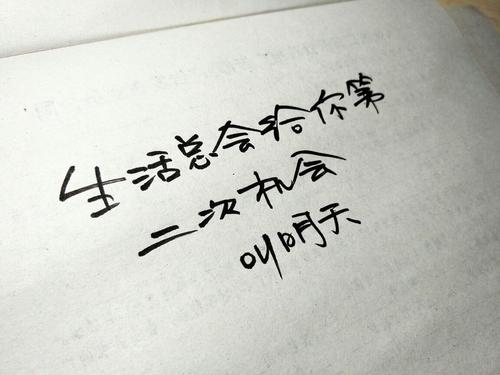 生活总会给你第
二次机会
叫明天